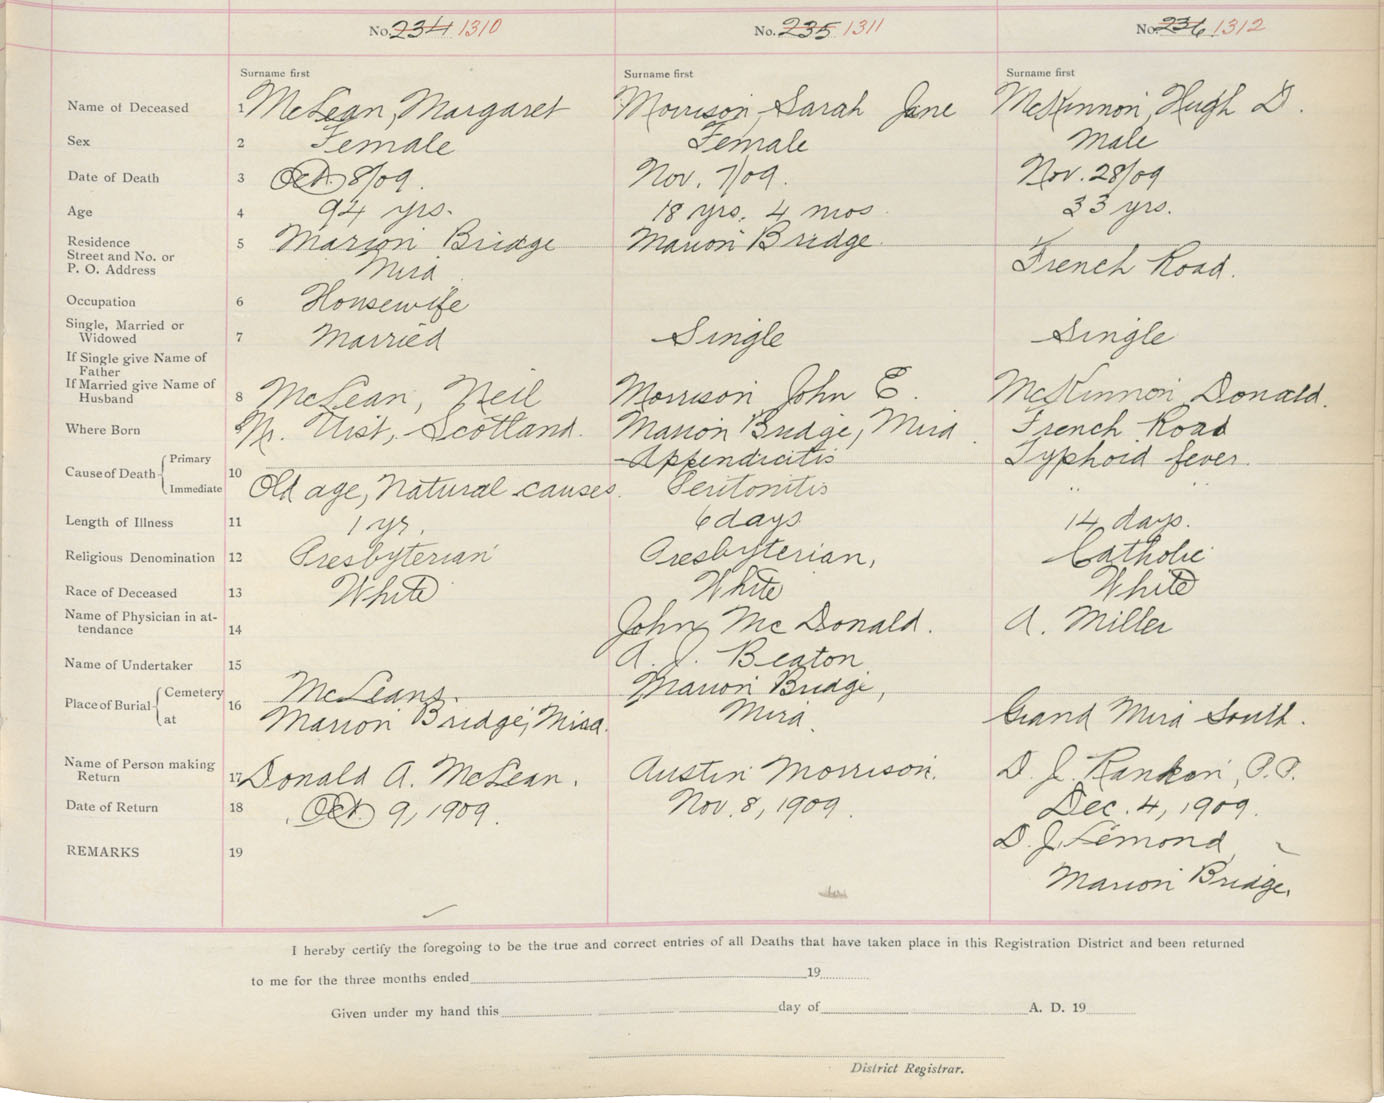 No. 234 1310 No. 235 1311 No. 236 1312
Surname first Surname first Surname first
Name of Deceased 1 McLean, Margaret Morrison, Sarah Jane McKinnon, Hugh D.
Sex 2 Female Female Male
Date of Death 3 Oct. 8/09. Nov. 7/09. Nov. 28/09
Age 4 94 yrs. 18 yrs. 4 mos 33 yrs.
Residence 5 Marion Bridge Marion Bridge.
Street and No. or
P. O. Address Mira French Road.
Occupation 6 Housewife
Single, Married or
Widowed 7 Married Single Single
If Single give Name of
Father
If Married give Name of
Husband 8 McLean, Neil Morrison John E. McKinnon, Donald.
Where Born 9 N. Uist, Scotland. Marion Bridge, Mira. French Road
Cause of Death Primary Appendicitis Typhoid fever.
10 Immediate Old age, Natural causes. Peritonitis " "
Length of Illness 11 1 yr. 6 days 14 days.
Religious Denomination 12 Presbyterian Presbyterian, Catholic
Race of Deceased 13 White White White
Name of Physician in at-
tendance 14 John McDonald. A. Miller
Name of Undertaker 15 A. J. Beaton
Place of Burial Cemetery McLeans. Marion Bridge,
16 at Marion Bridge, Mira. Mira. Grand Mira South.
Name of Person making
Return 17 Donald A. McLean. Austin Morrison. D. J. Rankin, P.P.
Date of Return 18 Oct. 9, 1909. Nov. 8, 1909. Dec. 4, 1909.
REMARKS 19 D. J.
Marion Bridge.
I hereby certify the foregoing to be the true and correct entries of all Deaths that have taken place in this Registration District and been returned
to me for the three months ended 19
Given under my hand this day of A. D. 19
District Registrar.